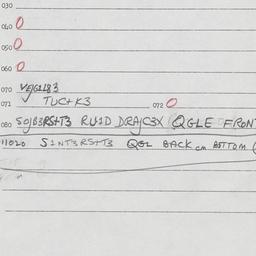 030
040 0
050 0
060 0
070 VEJG1L83
071 TUCtK3 072 0
080 50JB3RS+T3 RU1D DRAJC3X QGLE FRON
11020 S1NT3RS+T3 QGL BACK cm BOTTOM